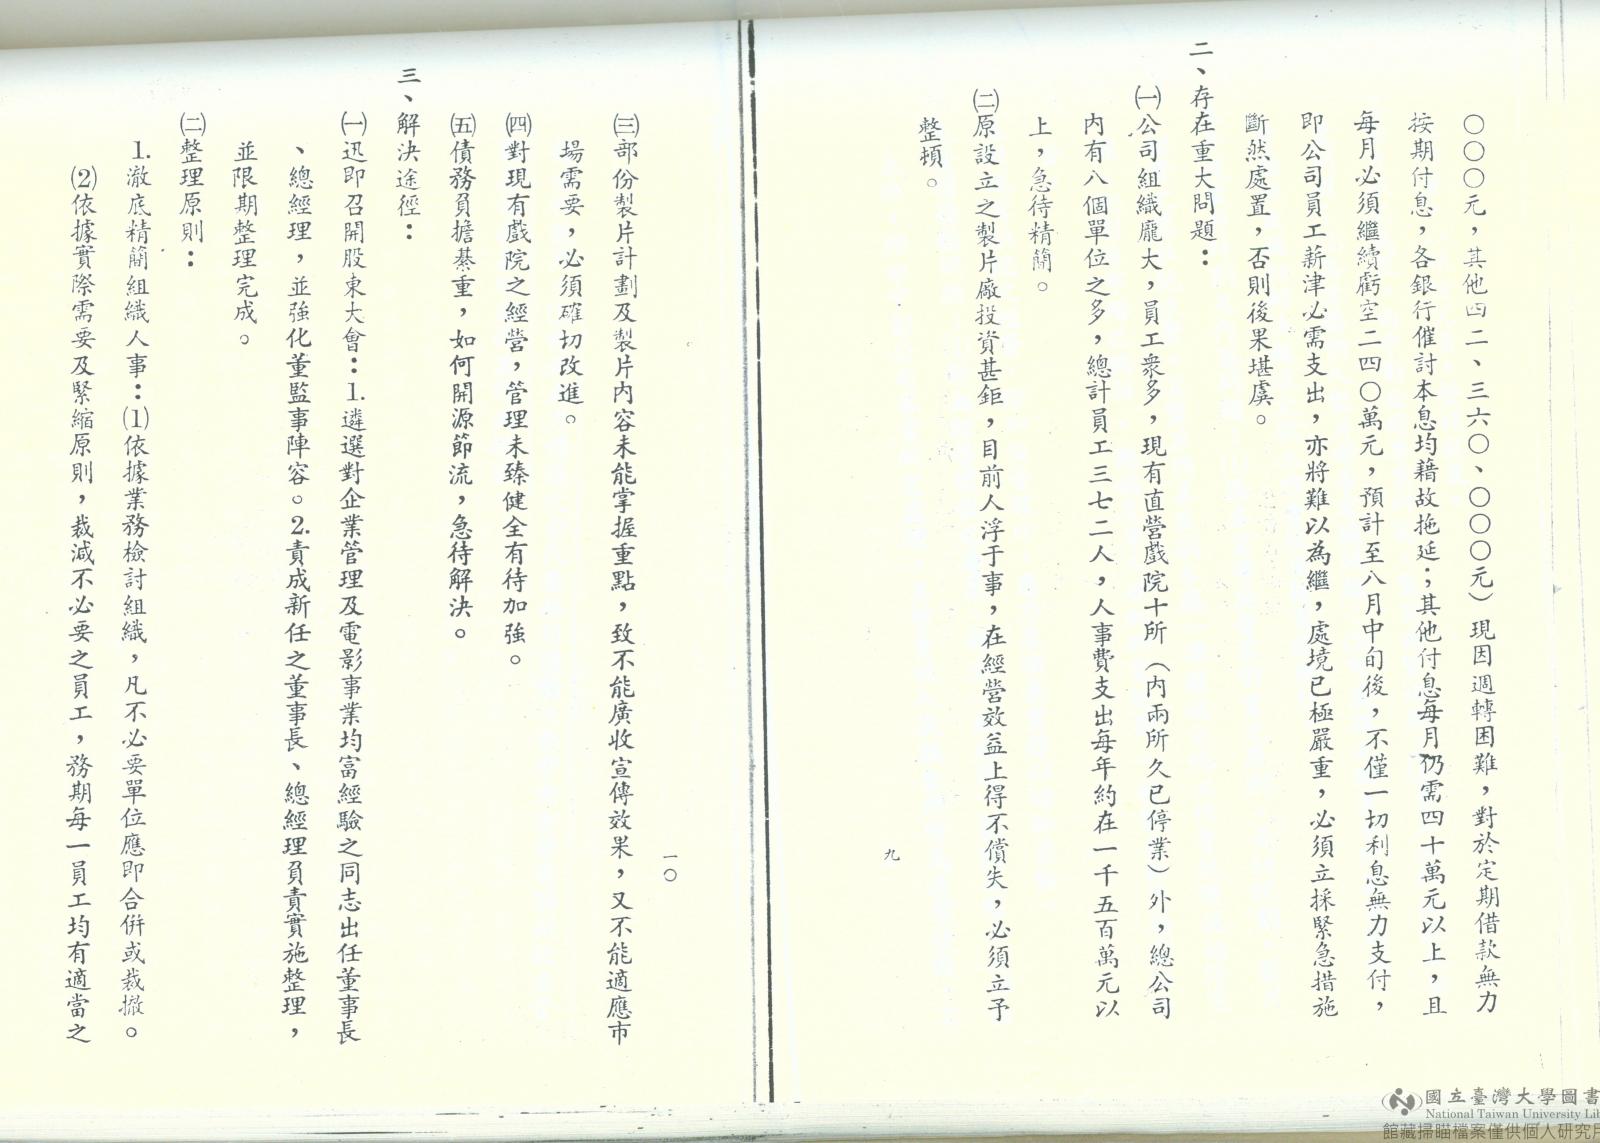 ○○○元，其他四二、三六○、○○○元）現因週轉困難，對於定期借款無力
按期付息，各銀行催討本息均藉故拖延；其他付息每月仍需四十萬元以上，且
每月必須繼續虧空二四○萬元，預計至八月中旬後，不僅一切利息無力支付，
即公司員工薪津必需支出，亦將難以為繼，處境已極嚴重，必須立採緊急措施
斷然處置，否則後果堪虞。
二、存在重大問題：
㈠公司組織龐大，員工衆多，現有直營戲院十所（內兩所久已停業）外，總公司
內有八個單位之多，總計員工三七二人，人事費支出每年約在一千五百萬元以
上，急待精簡。
㈡原設立之製片廠投資甚鉅，目前人浮于事，在經營效益上得不償失，必須立予
整頓。
九
㈢部份製片計劃及製片內容未能掌握重點，致不能廣收宣傳效果，又不能適應市
場需要，必須確切改進。
㈣對現有戲院之經營，管理未臻健全有待加強。
㈤債務負擔綦重，如何開源節流，急待解決。
三、解決途徑：
㈠迅即召開股東大會：1.遴選對企業管理及電影事業均富經驗之同志出任董事長
、總經理，並強化董監事陣容。2.責成新任之董事長、總經理負責實施整理，
並限期整理完成。
㈡整理原則：
1.澈底精簡組織人事：⑴依據業務檢討組織，凡不必要單位應即合併或裁撤。
⑵依據實際需要及緊縮原則，裁減不必要之員工，務期每一員工均有適當之
一○
國立臺灣大學圖書
National Taiwan University Li
館藏掃瞄檔案僅供個人研究用